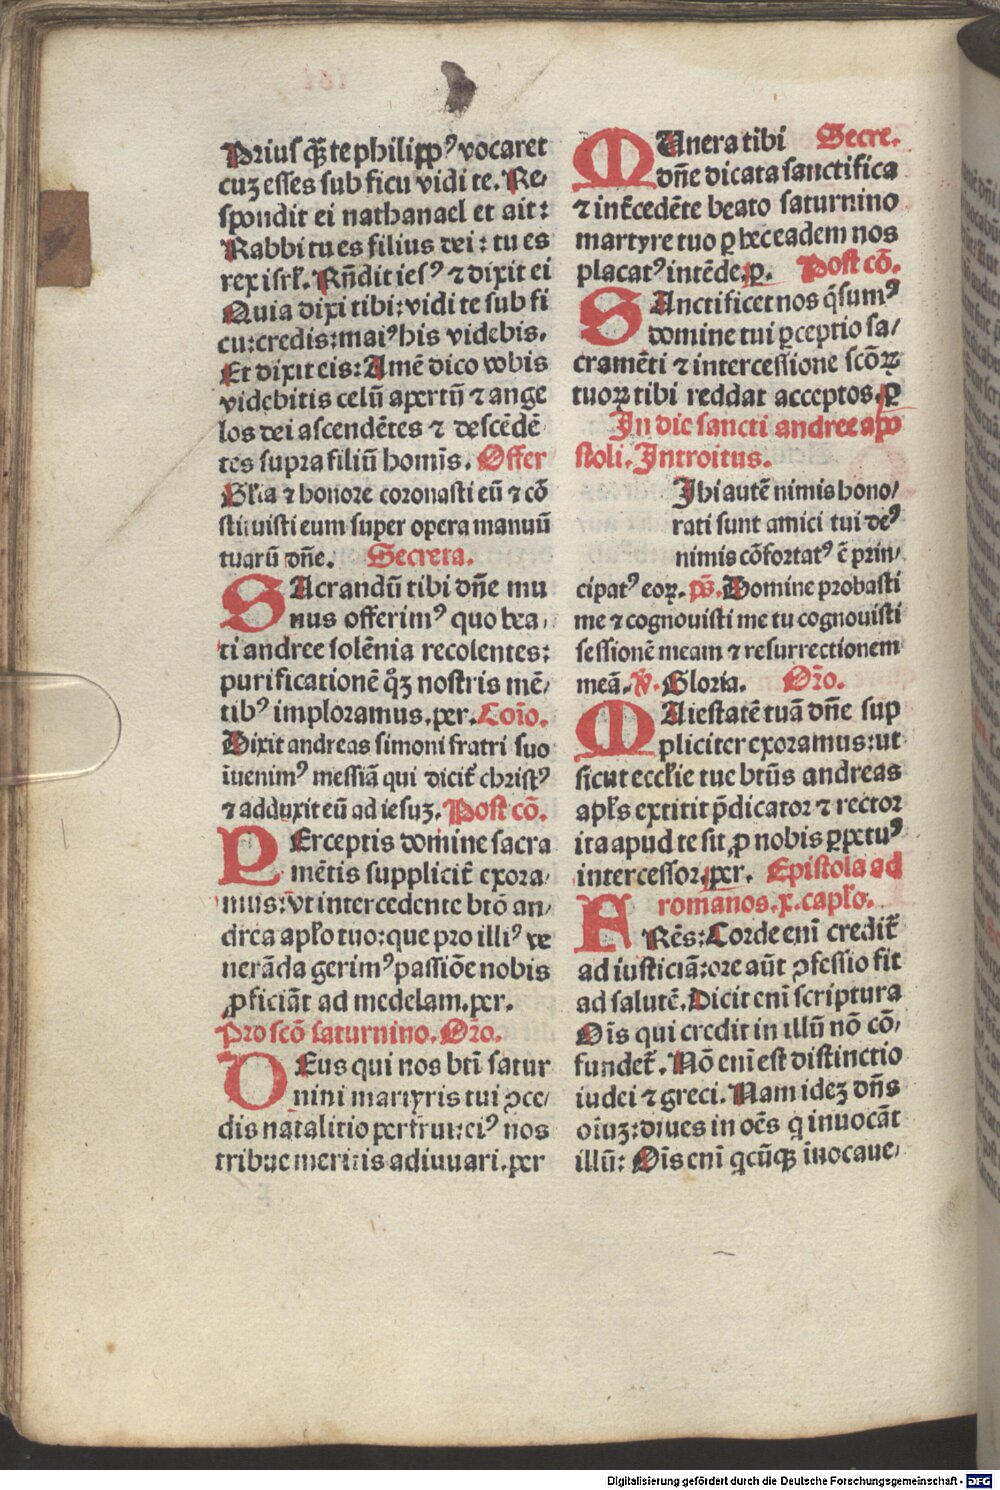 Priusq̃ꝫ te philippꝰ vocaret
cuꝫ esses sub ficu vidi te. Re⸗
spondit ei nathanael et ait:
Rabbi tu es filius dei: tu es
rex isrl̃. Rñdit iesꝰ ⁊ dixit ei
Quia dixi tibi: vidi te sub fi
cu: credis: maiꝰ his videbis.
Et dixit eis: Amẽ dico vobis
videbitis celũ apertũ ⁊ ange
los dei ascendẽtes ⁊ descẽdẽ
tes supra filiũ homĩs. Offer
Gl̃ia ⁊ honore coronasti eũ ⁊ cõ
stituisti eum super opera manuũ
tuarũ dñe. Secreta.
SAcrandũ tibi dñe mu
nus offerimꝰ quo bea⸗
ti andree solẽnia recolentes:
purificationẽ q̊ꝫ nostris mẽ⸗
tibꝰ imploramus. per. Coĩo.
Dixit andreas simoni fratri suo
ĩuenimꝰ messiã qui dicit̃ christꝰ
⁊ adduxit eũ ad iesuꝫ. Post cõ.
PErceptis domine sacra
mẽtis suppliciť exora⸗
mus: vt intercedente btõ an⸗
drea apl̃o tuo: que pro illiꝰ ve
nerãda gerimꝰ passiõe nobis
ꝓficiãt ad medelam. per.
Pro scõ saturnino. Orõ.
DEus qui nos btĩ satur
nini martyris tui ꝯce⸗
dis natalitio perfrui: eiꝰ nos
tribue meritis adiuuari. per
MUnera tibi Secre.
dñe dicata sanctifica
⁊ inťcedẽte beato saturnino
martyre tuo ꝑ hec eadem nos
placatꝰ intẽde. ꝑ. Post cõ.
SAnctificet nos q̃sumꝰ
domine tui ꝑceptio sa⸗
cramẽti ⁊ intercessione scõꝝ
tuoꝝ tibi reddat acceptos. ꝑ
In die sancti andree apo
stoli. Introitus.
Ihi autẽ nimis hono⸗
rati sunt amici tui deꝰ
nimis cõfortatꝰ ẽ prin⸗
cipatꝰ eoꝝ. p̃s. Domine probasti
me ⁊ cognouisti me tu cognouisti
sessionẽ meam ⁊ resurrectionem
meã. ꝟ. Gloria. Orõ.
MAiestatẽ tuã dñe sup
pliciter exoramus: ut
sicut eccl̃ie tue btũs andreas
apl̃s extitit p̃dicator ⁊ rector
ita apud te sit ꝓ nobis ꝑpetuꝰ
intercessor. per. Epistola ad
romanos. x. capl̃o.
FRẽs: Corde enĩ credit̃
ad iusticiã: ore aũt ꝯfessio fit
ad salutẽ. Dicit enĩ scriptura
Oĩs qui credit in illũ nõ cõ⸗
fundet̃. Nõ enĩ est distinctio
iudei ⁊ greci. Nam ideꝫ dñs
oĩuꝫ: diues in oẽs q̃ inuocãt
illũ: Oĩs enĩ q̃cũqꝫ inocaue⸗
Digitalisierung gefördert durch die Deutsche Forschungsgemeinschaft - DFG